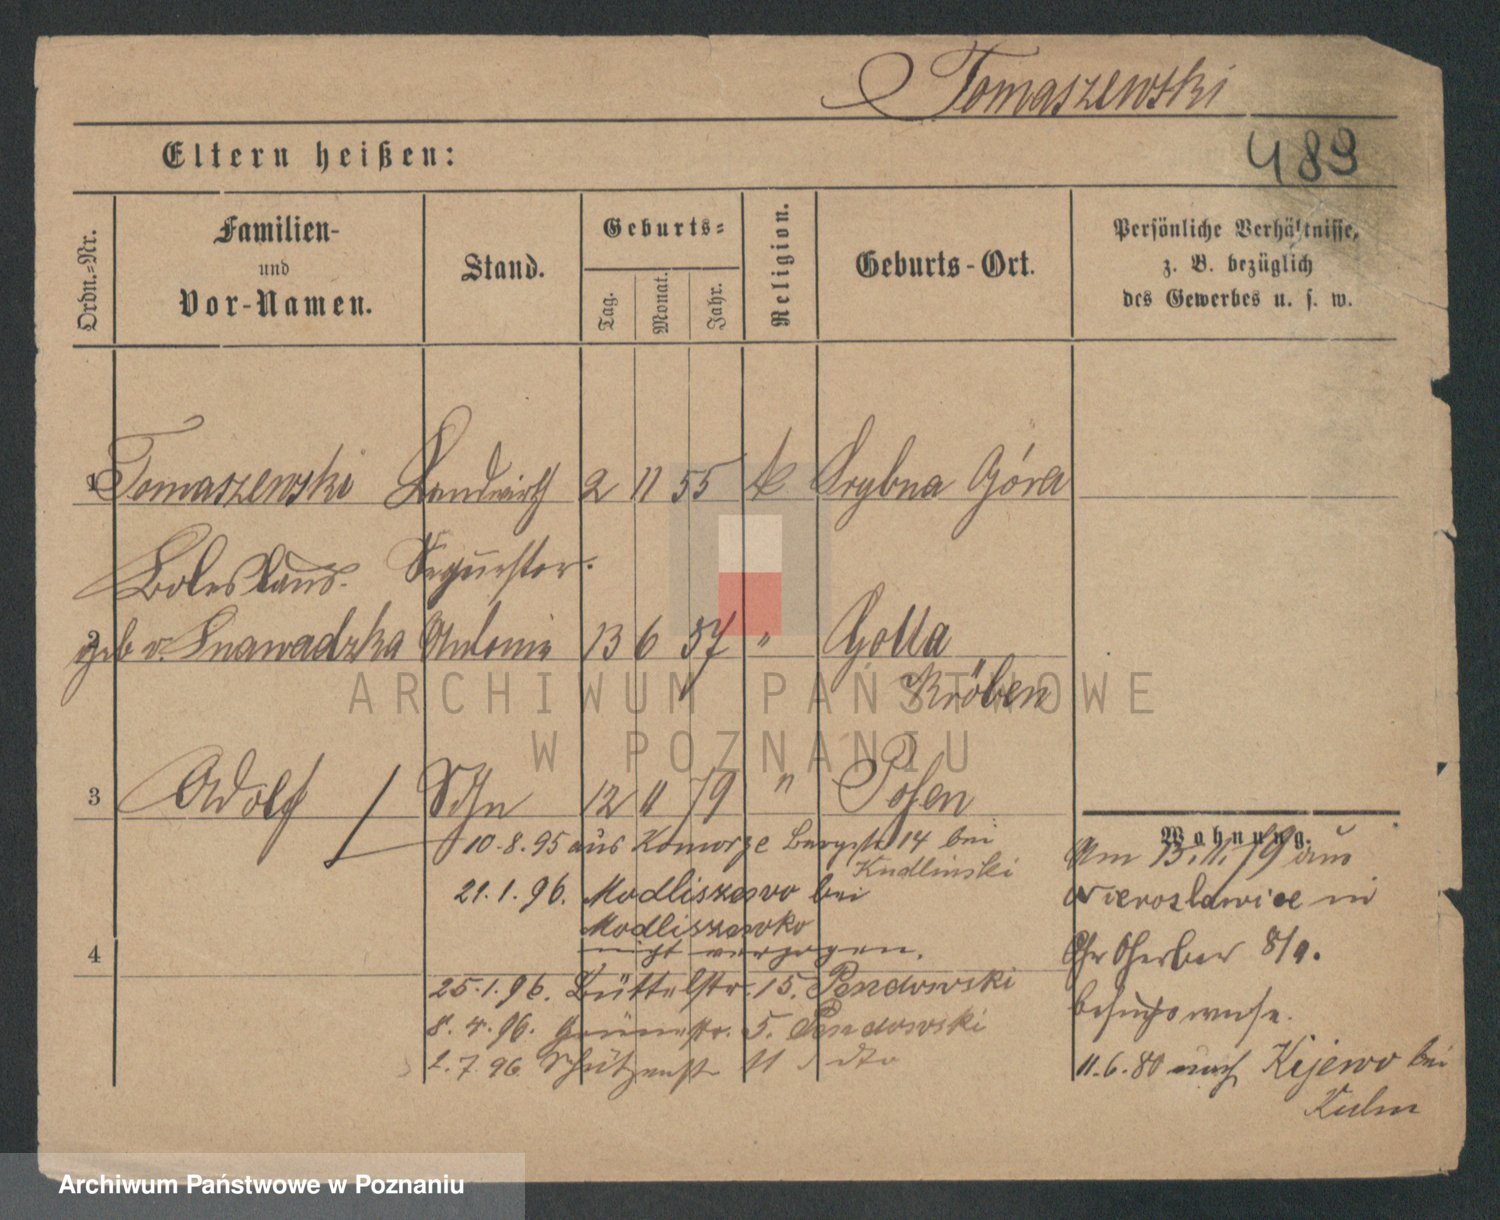 Tomaszewski
489
Eltern heißen:
Ordn.-Nr.
Familien-
und
Vor-Namen.
Stand.
Geburts-
Tag.
Monat.
Jahr.
Religion.
Geburts-Ort.
Persönliche Verhältnisse,
z. B. bezüglich
des Gewerbes u. s. w.
1 Tomaszewski Landwirth 2 11 55 k Srybna Góra
Boleslaus. Sequester.
2 geb v. Antonie 13 6 57 " Golla
Kröben
3 Adolf Sohn 12 11 79 " Posen
10.8.95 aus Komorze Bergstr 14 bei
Kudlinski
21.1.96. Modliszewo bei
Modliszewko
nicht verzogen.
4
25.1.96. Büttelstr. 15. Pendowski
8.4.96. Grünestr. 5. Pendowski
2.7.96 Schützenstr 11 dto
Wohnung.
Am 13.11.79 aus
Nieroslawice in
8/9.
besuchsweise.
11.6.80 nach Kijewo bei
Kulm
ARCHIWUM PAŃSTWOWE
W POZNANIU
Archiwum Państwowe w Poznaniu